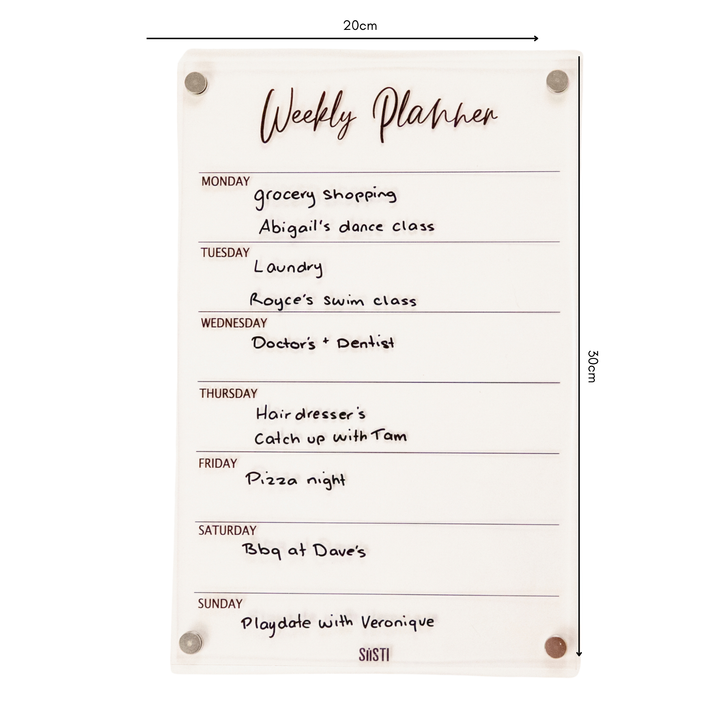 20cm
Weekly Planner
MONDAY
grocery shopping
Abigail's dance class
TUESDAY
Laundry
Royce's swim class
WEDNESDAY
Doctor's + Dentist
30cm
THURSDAY
Hairdresser's
Catch up with Tam
FRIDAY
Pizza night
SATURDAY
Bbq at Dave's
SUNDAY
Playdate with Veronique
SiiSTI